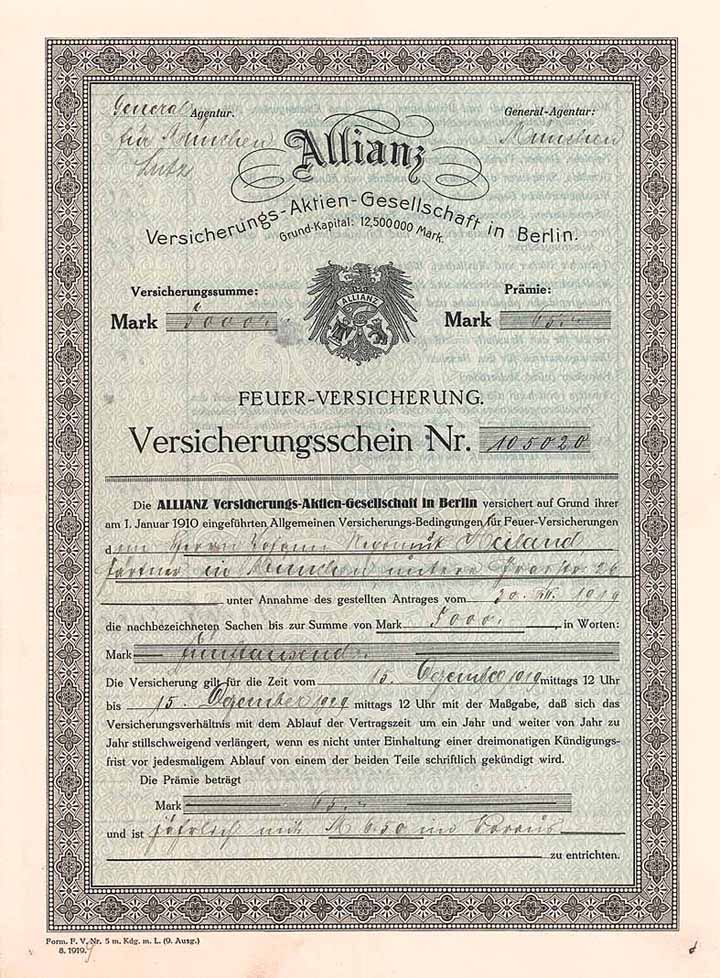 General Agentur.
für München
Lutz
General-Agentur:
München
Allianz
Versicherungs-Aktien-Gesellschaft in Berlin.
Grund-Kapital: 12,500000 Mark.
Versicherungssumme:
Mark 5000.-
Prämie:
Mark 65.-
ALLIANZ
FEUER-VERSICHERUNG.
Versicherungsschein Nr. 105020
Die ALLIANZ Versicherungs-Aktien-Gesellschaft in Berlin versichert auf Grund ihrer
am 1. Januar 1910 eingeführten Allgemeinen Versicherungs-Bedingungen für Feuer-Versicherungen
Herrn Johann
in München untere 26
unter Annahme des gestellten Antrages vom 1919
die nachbezeichneten Sachen bis zur Summe von Mark 5000.-, in Worten:
Mark fünftausend.
Die Versicherung gilt für die Zeit vom 15. Dezember 1919 mittags 12 Uhr
bis 15. Dezember 1929 mittags 12 Uhr mit der Maßgabe, daß sich das
Versicherungsverhältnis mit dem Ablauf der Vertragszeit um ein Jahr und weiter von Jahr zu
Jahr stillschweigend verlängert, wenn es nicht unter Einhaltung einer dreimonatigen Kündigungs-
frist vor jedesmaligem Ablauf von einem der beiden Teile schriftlich gekündigt wird.
Die Prämie beträgt
Mark 65.-
und ist jährlich mit M 6.50 im Voraus
zu entrichten.
Form. F. V. Nr. 5 m. Kdg. m. L. (9. Ausg.)
8. 1919.